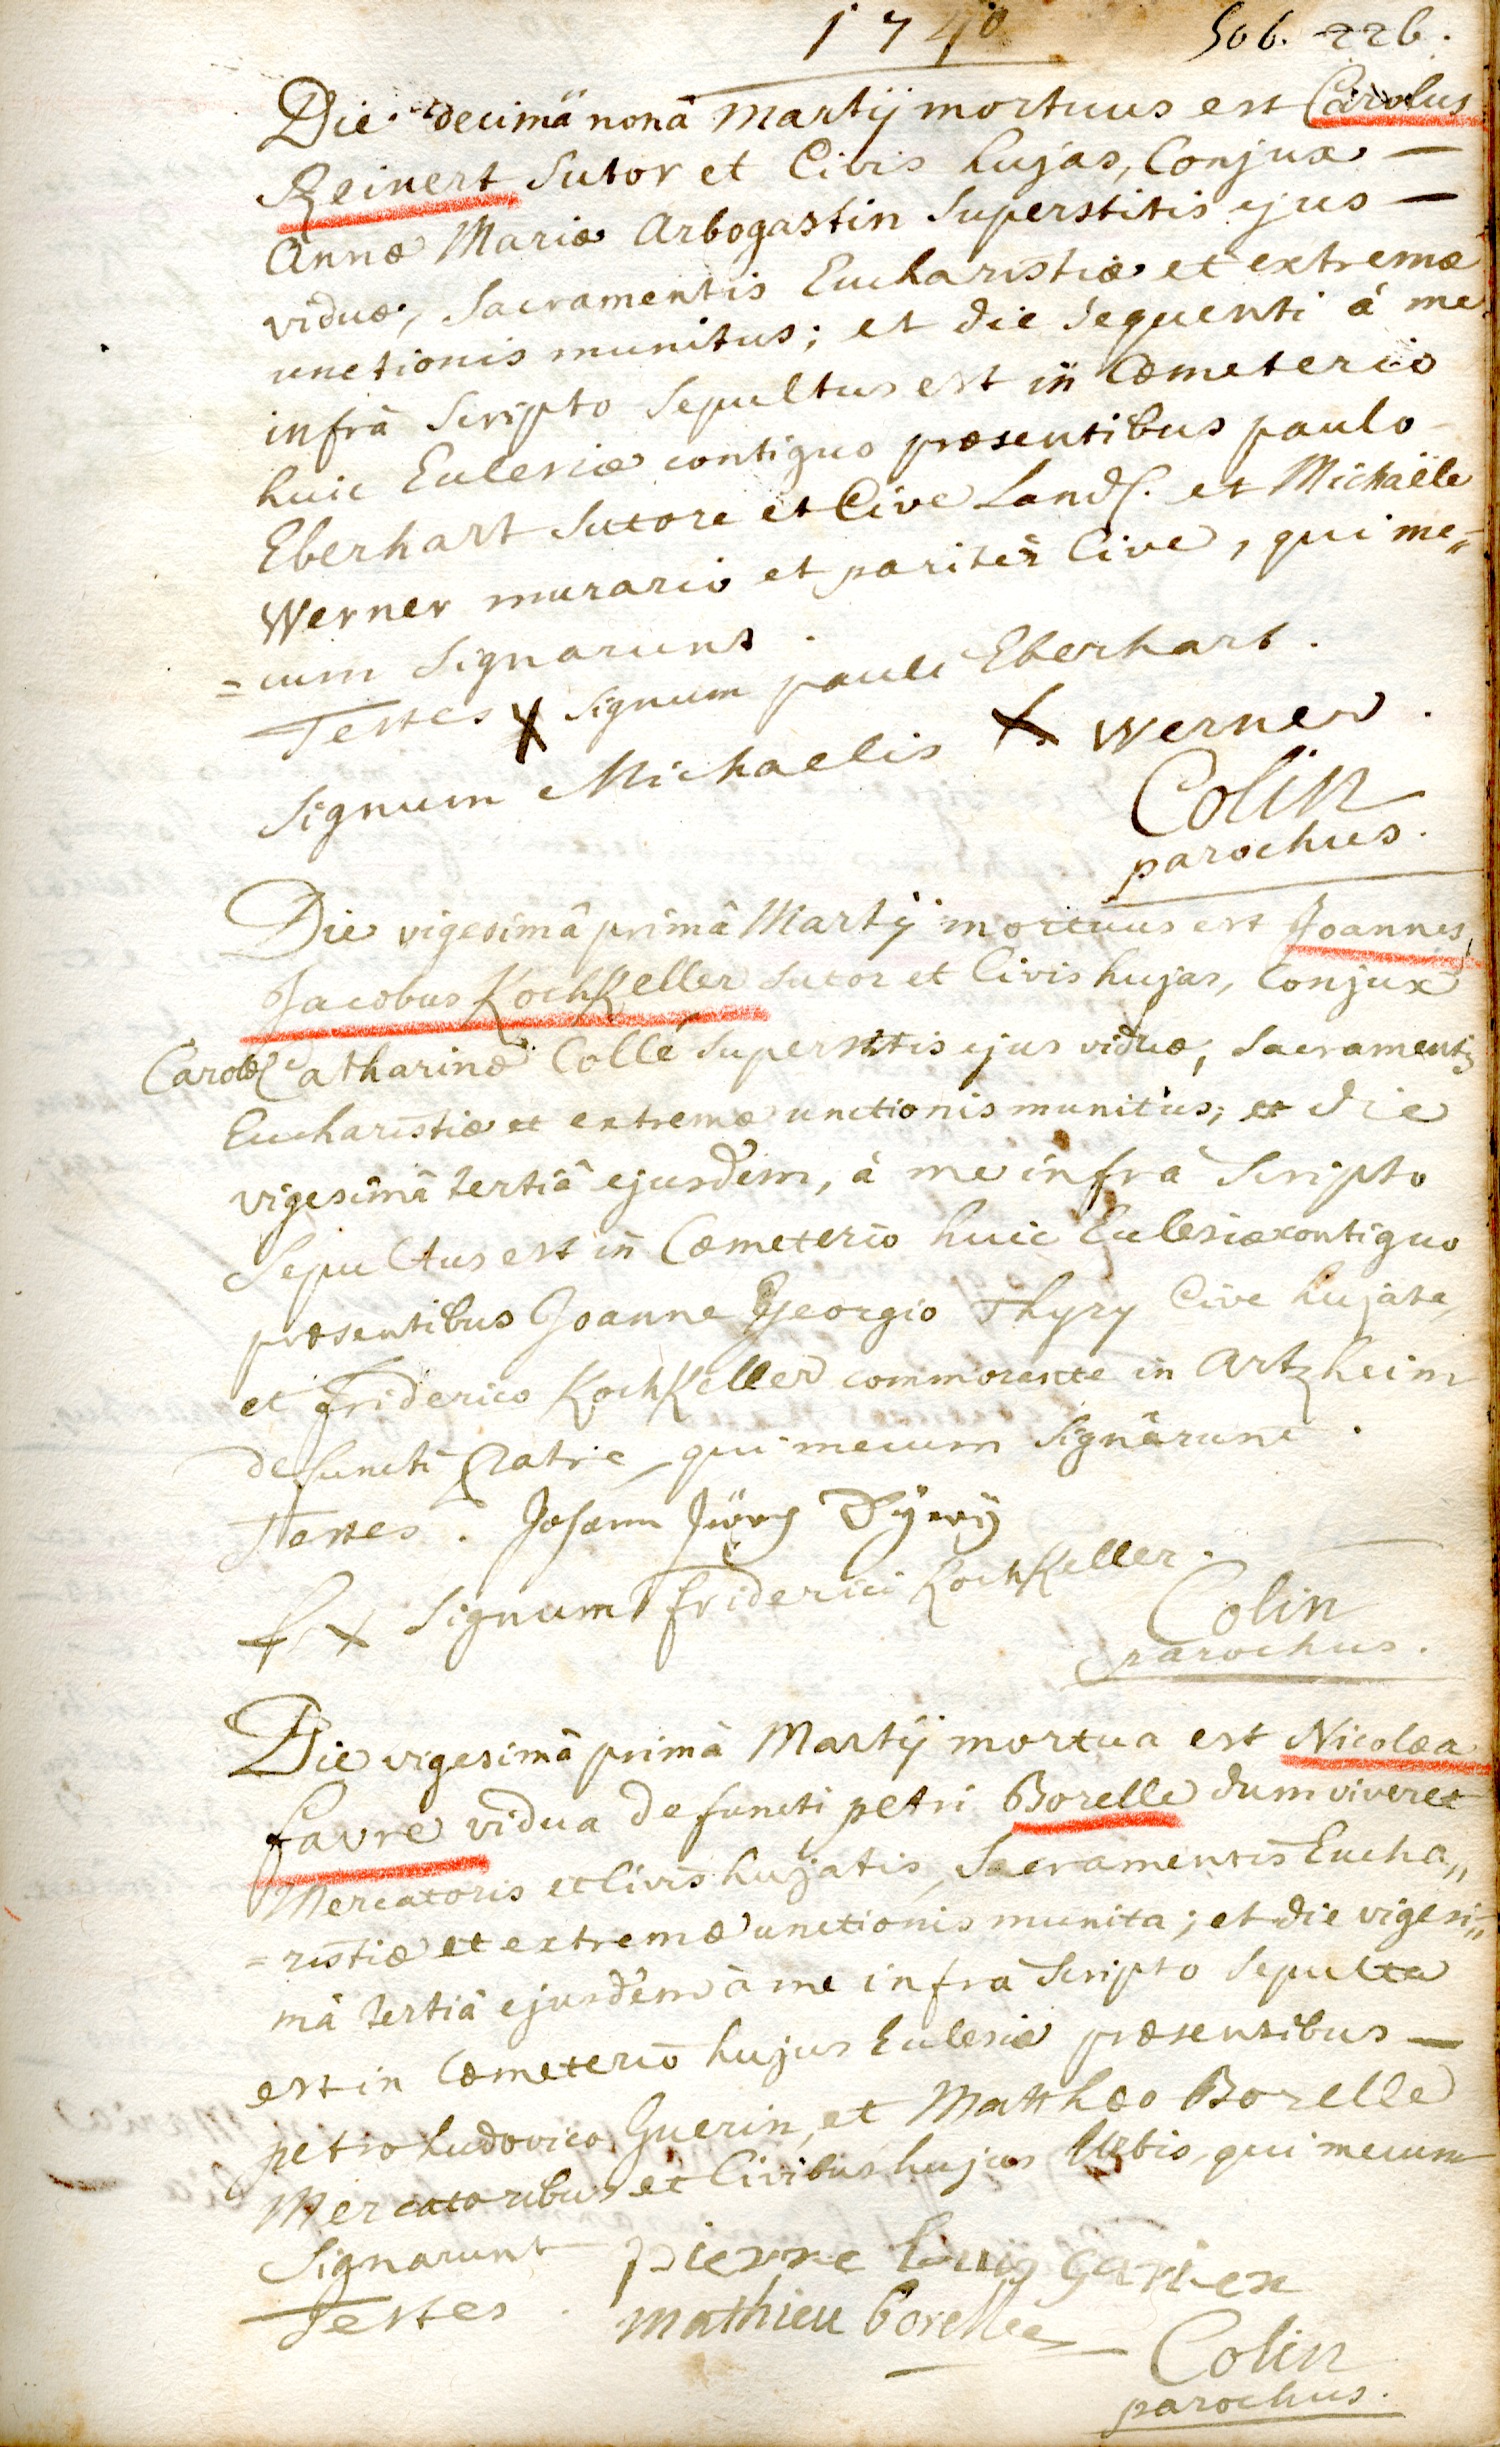 1740 506. 226.
Die decimâ nonâ Martij mortuus est Carolus
Reinert Sutor et Civis hujas, Conjux —
Annæ Mariæ Arbogastin Superstitis ejus —
viduæ, Sacramentis Eucharistiæ et extremæ
unctionis munitus; et die sequenti à me
infrà Scripto Sepultus est in Cœmeterio
huic Ecclesiæ contiguo præsentibus paulo
Eberhart Sutore et Cive Land. et Michaële
Werner murario et pariter Cive, qui me„
=cum Signarunt.
Testes X Signum pauli Eberhart.
Signum Michaelis X Werner.
Colin
parochus.
Die vigesimâ primâ Martij mortuus est Joannes
Jacobus KochKeller Sutor et Civis hujas, Conjux
Carolæ Catharinæ Collé Superstitis ejus viduæ, Sacramentis
Eucharistiæ et extremæ unctionis munitus; et die
vigesimâ tertiâ ejusdem, à me infrà Scripto
Sepultus est in Cœmeterio huic Ecclesiæ contiguo
præsentibus Joanne Georgio Thyry Cive hujate,
et Friderico KochKeller commorante in Artzheim
defuncti fratre, qui mecum Signârunt.
Testes. Johann Jürg Dÿrÿ
X Signum Friderici KochKeller.
Colin
parochus.
Die vigesimâ primâ Martij mortua est Nicolæa
favre vidua defuncti petri Borelle dum viveret
Mercatoris et Civis hujatis, Sacramentis Eucha„
=ristiæ et extremæ unctionis munita; et die vigesi„
mâ tertiâ ejusdem à me infrà Scripto Sepulta
est in Cœmeterio hujus Ecclesiæ præsentibus —
petro Ludovico Guerin, et Matthæo Borelle
Mercatoribus et Civibus hujus Urbis, qui mecum
Signarunt pierre
Testes. mathieu borelle
Colin
parochus.